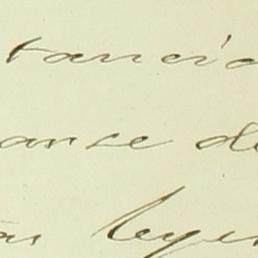 tancia
arse de
tas leyen